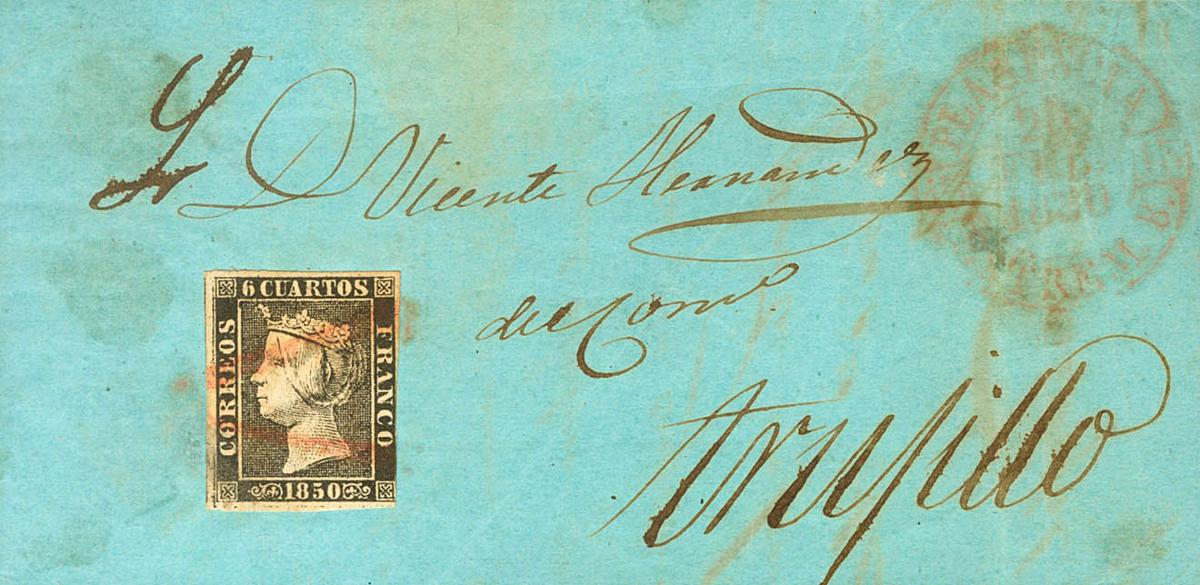 S. D. Vicente Hernandez
del Com.º
Trujillo
6 CUARTOS
CORREOS
FRANCO
1850
PLASENCIA
1850
ESTREM. B.